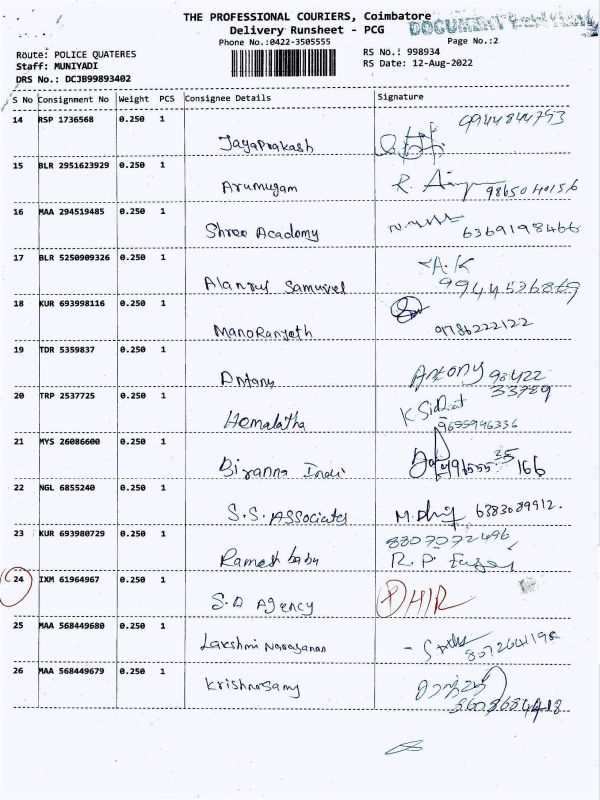 THE PROFESSIONAL COURIERS, Coimbatore
Delivery Runsheet - PCG
Phone No.:0422-3505555
Page No.:2
Route: POLICE QUATERES
RS No.: 998934
Staff: MUNIYADI
RS Date: 12-Aug-2022
DRS No.: DCJB99893402
S No Consignment No Weight PCS Consignee Details Signature
14 RSP 1736568 0.250 1
Jayaprakash 9944844753
15 BLR 2951623929 0.250 1
Arumugam R. 9865040156
16 MAA 294519485 0.250 1
Shree Academy 6369198466
17 BLR 5250909326 0.250 1
Samuvel A.K
9944536869
18 KUR 693998116 0.250 1
Manoranjeth 9786222122
19 TDR 5359837 0.250 1
Antony Antony 98422
33789
20 TRP 2537725 0.250 1
Hemalatha K
9655996336
21 MYS 26086600 0.250 1
166
22 NGL 6855240 0.250 1
S.S. Associates M. 6383089912.
23 KUR 693980729 0.250 1
8807072496
Ramesh babu R.P.
24 IXM 61964967 0.250 1
S.A Agency
25 MAA 568449680 0.250 1
Lakshmi Narayanan 8072641198
26 MAA 568449679 0.250 1
Krishnasamy